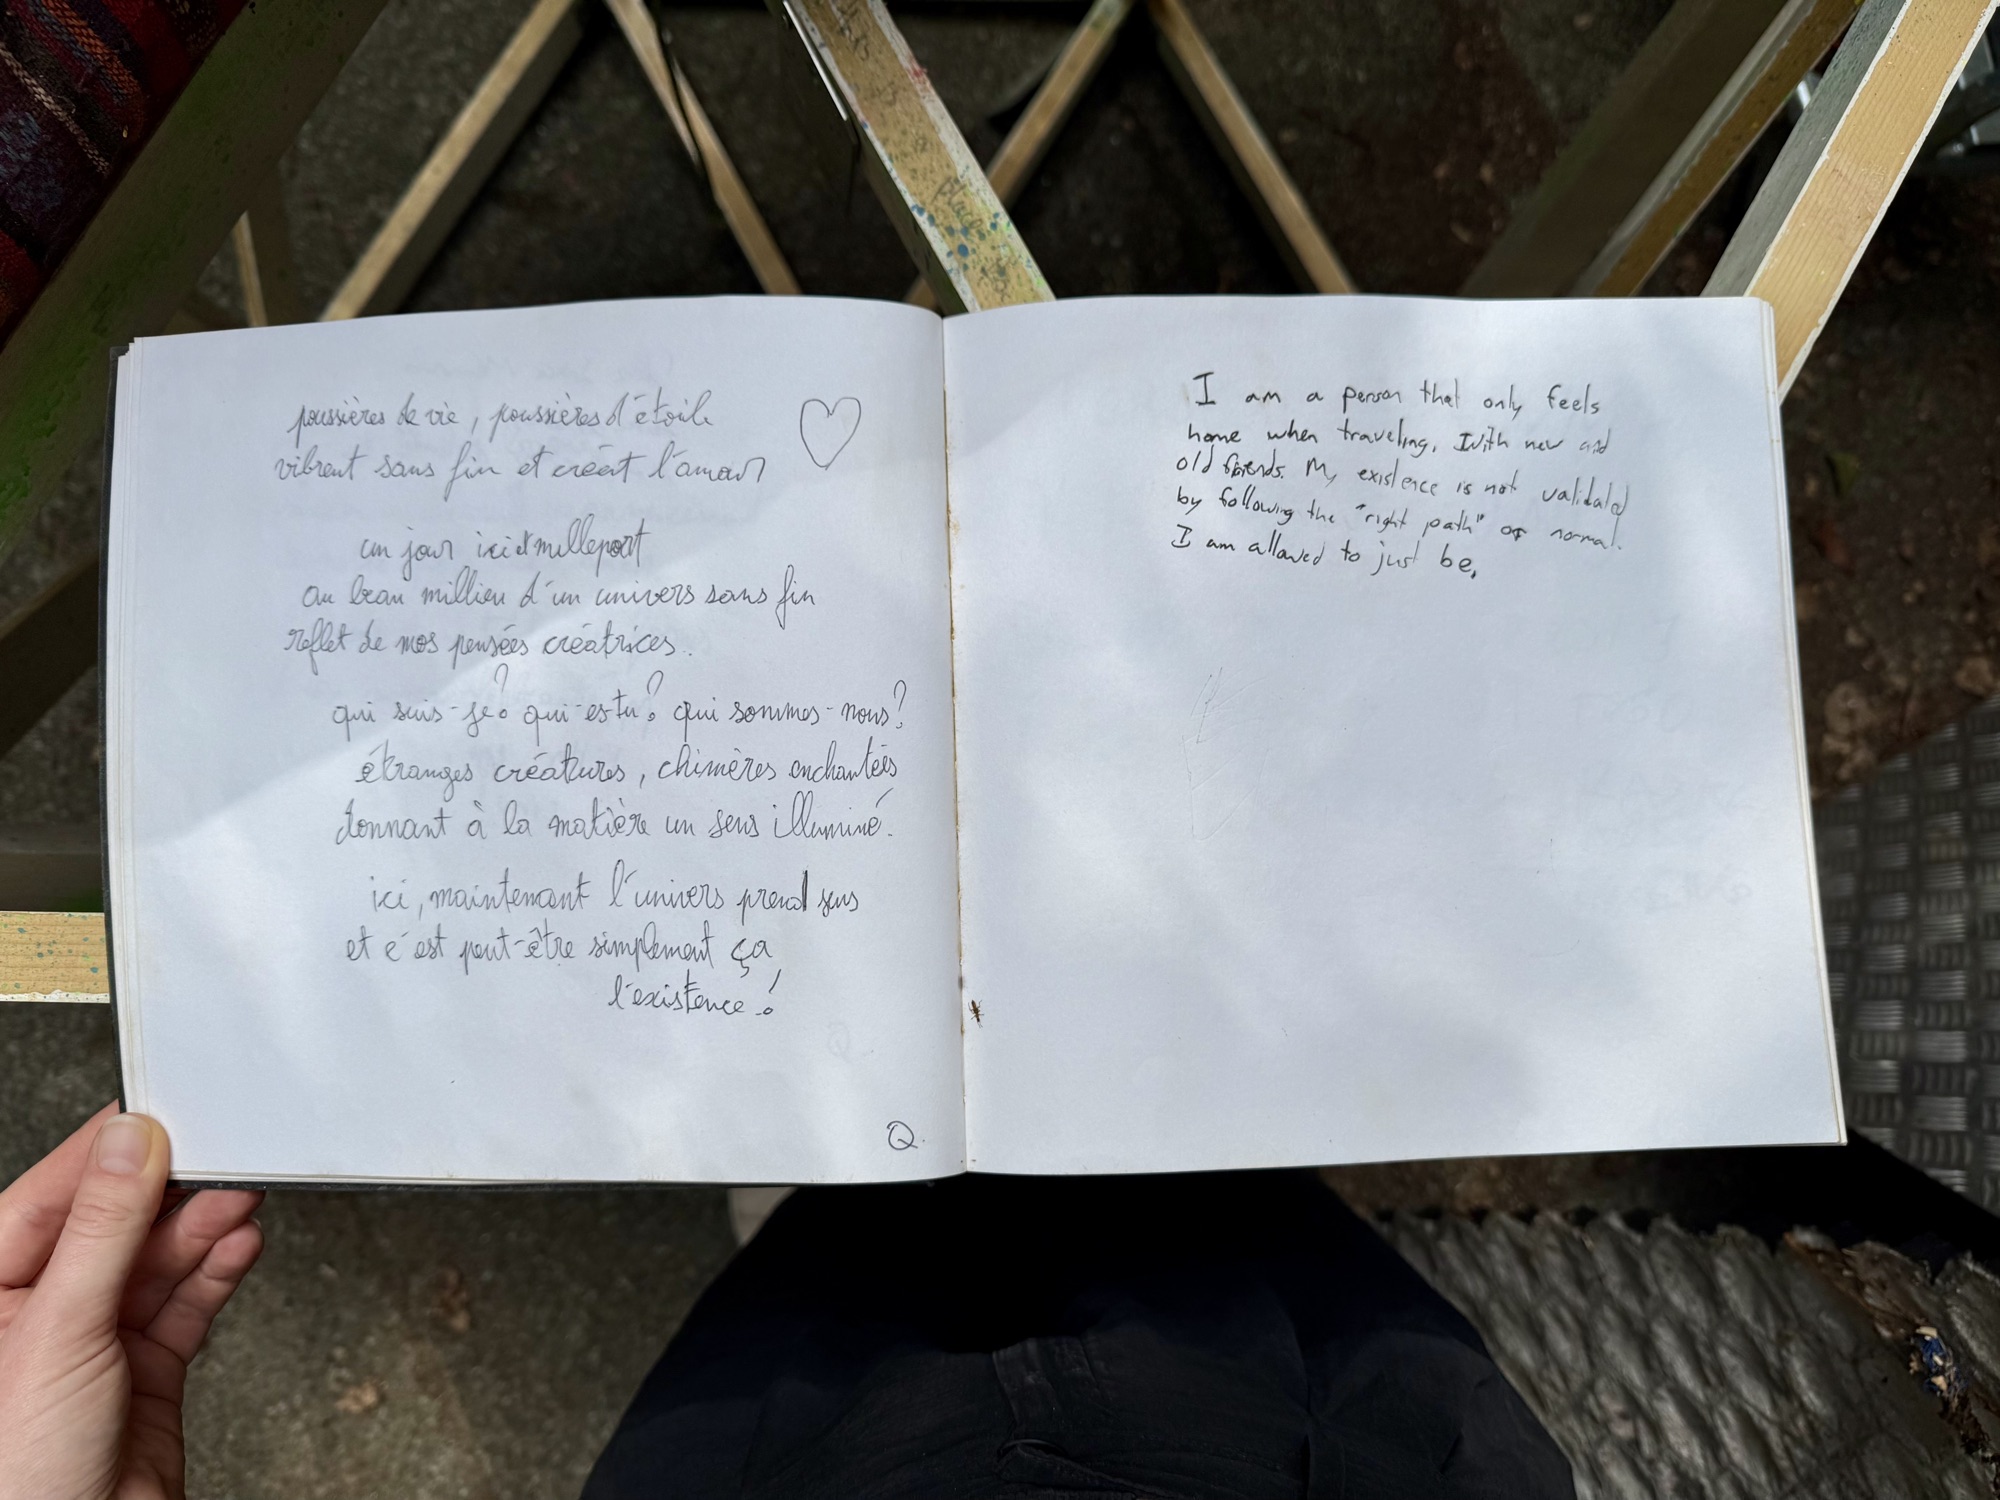 poussières de vie, poussières d'étoile
vibrent sans fin et créent l'amour
un jour ici et nulle part
au beau millieu d'un univers sans fin
reflet de mos pensées créatrices..
qui suis-je? qui-es-tu? qui sommes-nous?
étranges créatures, chimères enchantées
donnant à la matière un sens illuminé.
ici, maintenant l'univers prend sens
et c'est peut-être simplement ça
l'existence!
Q.
I am a person that only feels
home when traveling. With new and
old friends. My existence is not validated
by following the "right path" or normal.
I am allowed to just be.